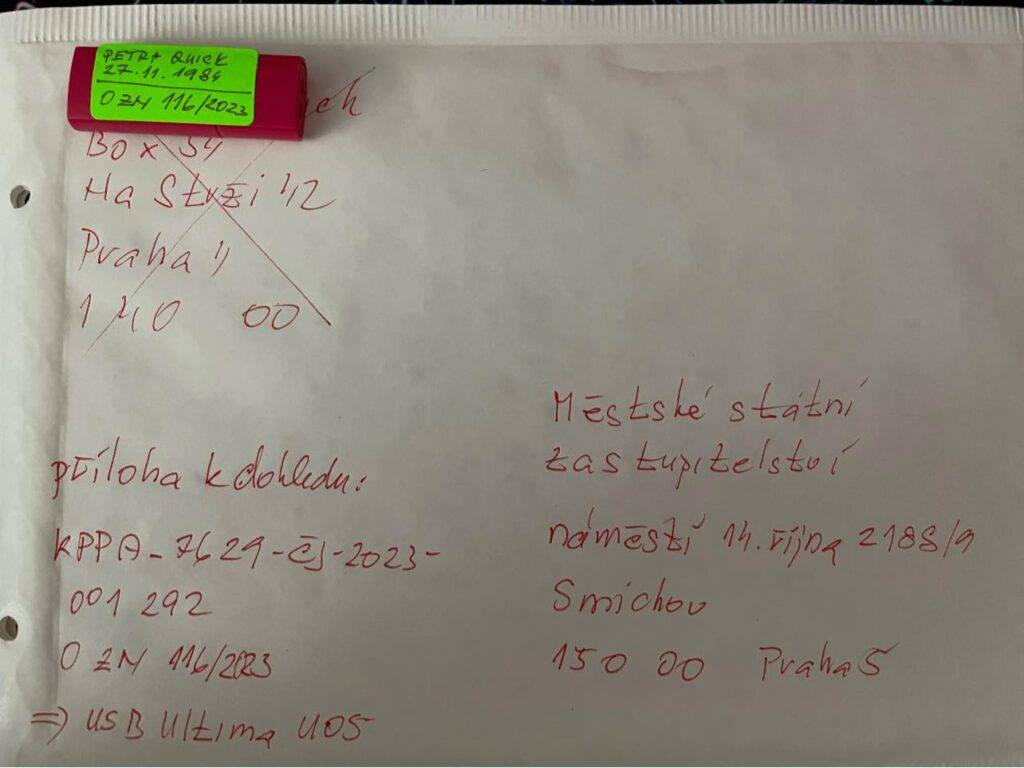 PETRA QUICK
27.11.1984
0 ZN 116/2023
Box 34
Na Strži 42
Praha 4
140 00
Městské státní
zastupitelství
náměstí 14. října 2188/9
Smíchov
150 00 Praha 5
příloha k dohledu:
KPPA-7629-čj-2023-
001 292
0 ZN 116/2023
=> USB Ultima U05